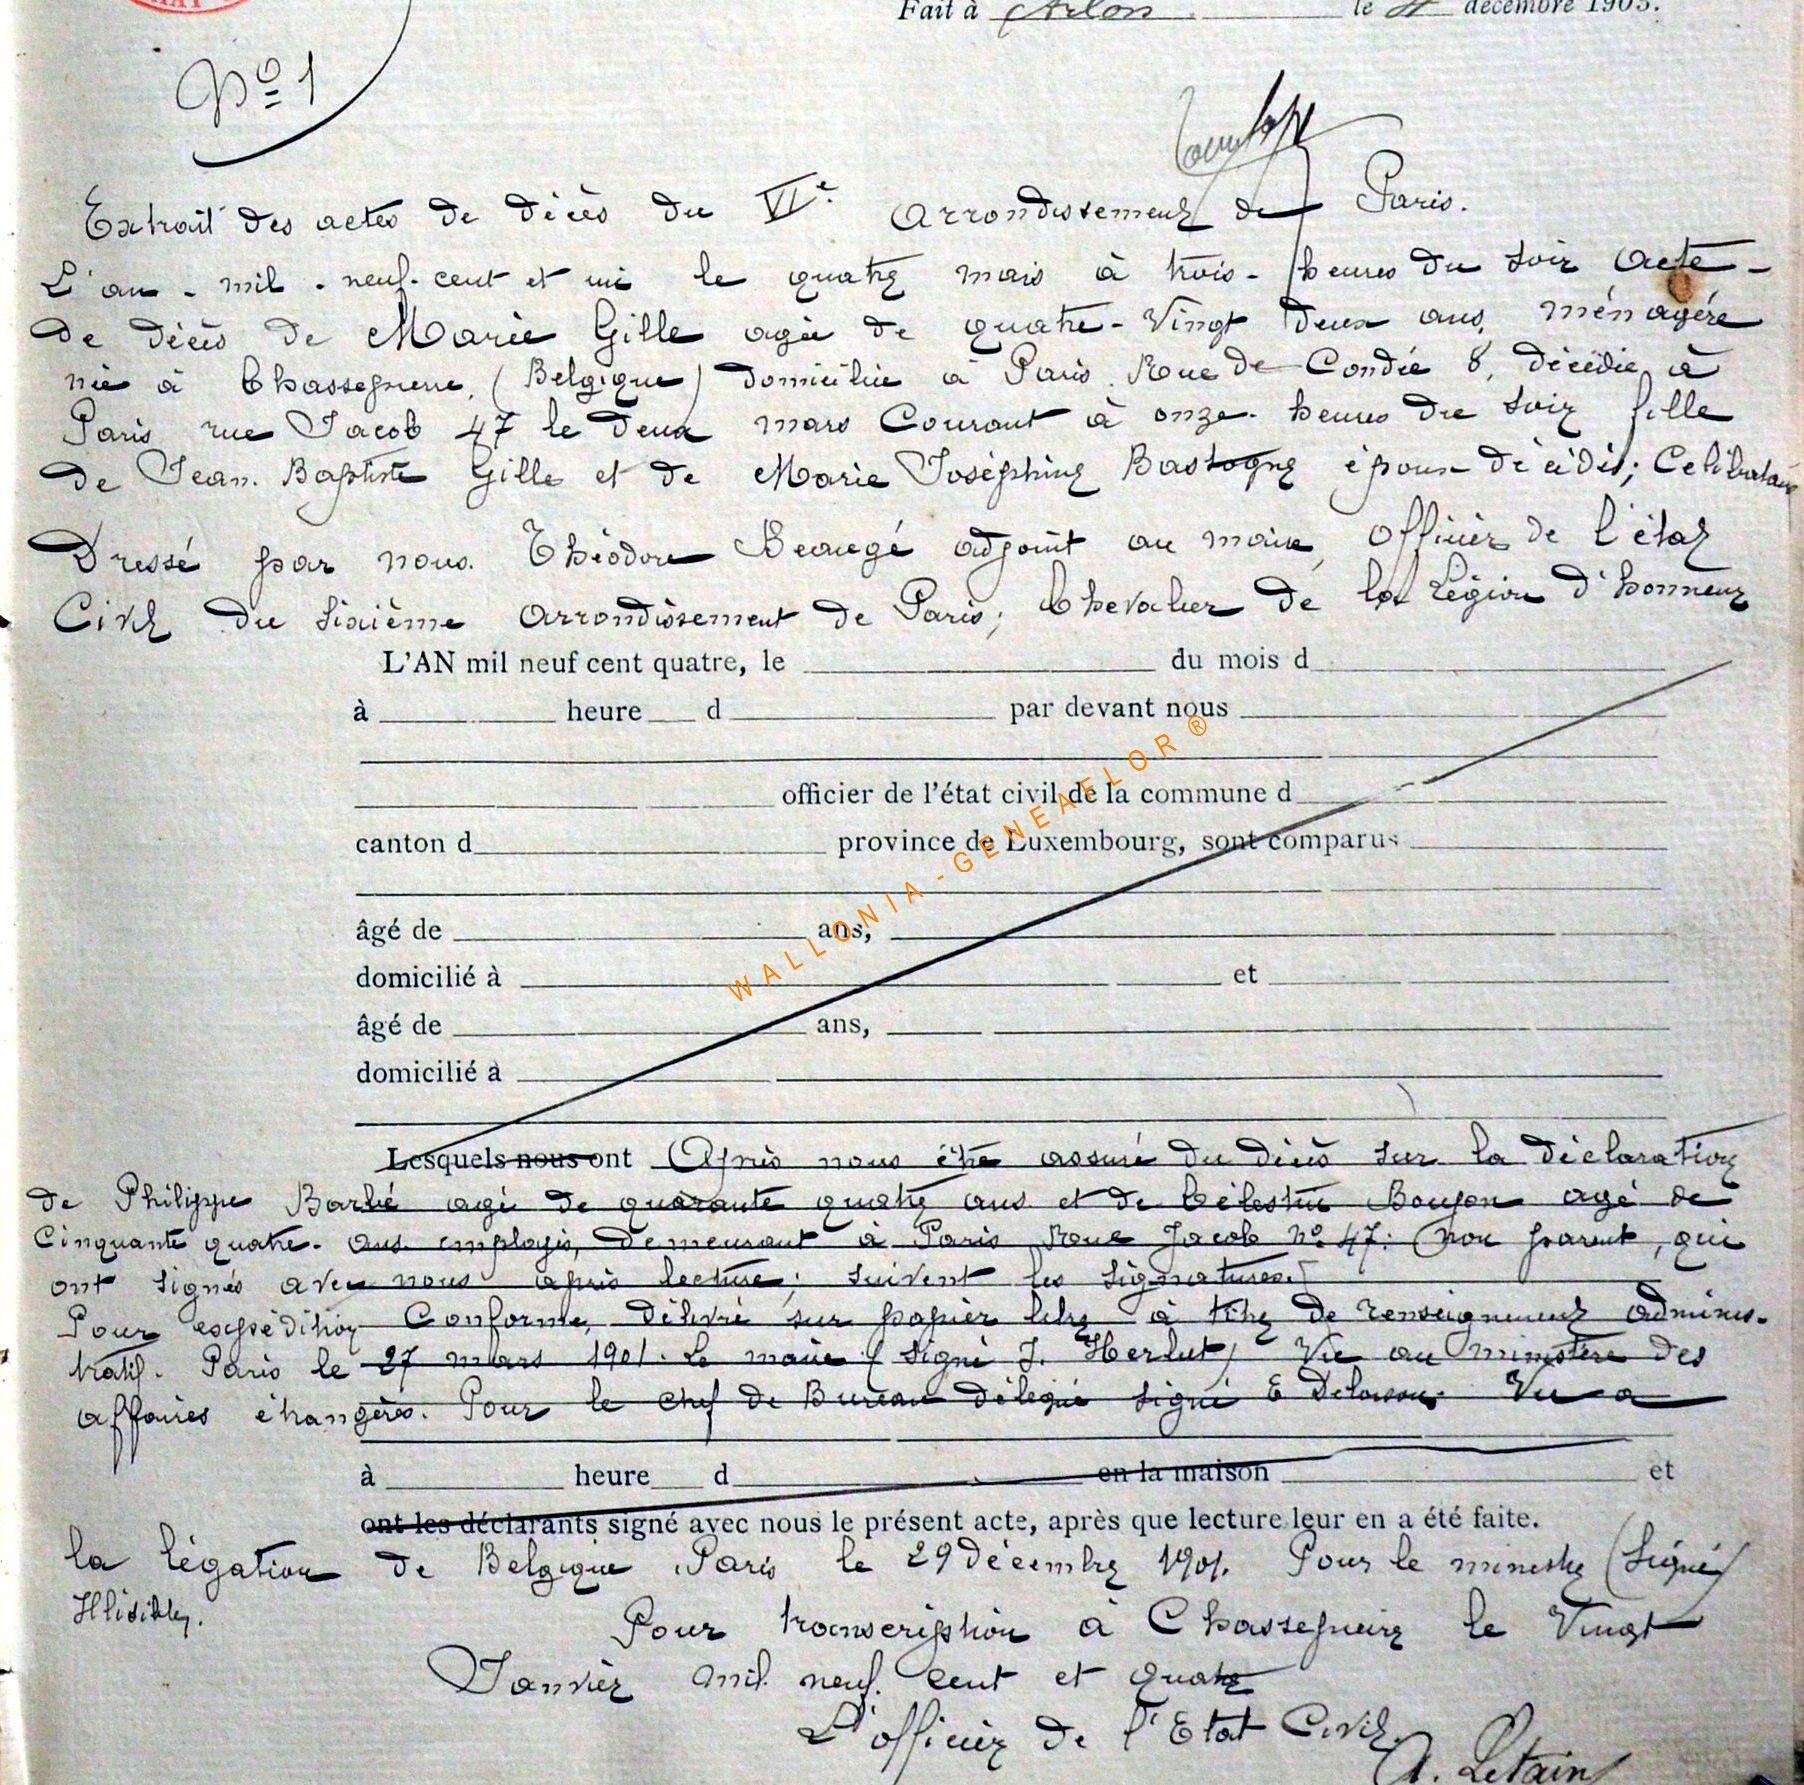 Fait à Arlon le 4 décembre 1903.
Nº 1
Extrait des actes de décès du VIe arrondissement de Paris.
L'an - mil - neuf - cent et un le quatre mars à trois - heures du soir acte -
de décès de Marie Gille agée de quatre - Vingt deux ans, ménagère
née à Chassepierre, (Belgique) domiciliée à Paris Rue de Condée 8, décédée à
Paris rue Jacob 47 le deux mars Courant à onze - heures du soir fille
de Jean - Baptiste Gille et de Marie Joséphine Bastogne époux décédés; Celibataire
Dressé par nous. Théodore Beaugé adjoint au maire, officier de l'état
Civil du sixième arrondissement de Paris; Chevalier de la Légion d'honneur
L'AN mil neuf cent quatre, le du mois d
à heure d par devant nous
officier de l'état civil de la commune d
canton d province de Luxembourg, sont comparus
âgé de ans,
domicilié à et
âgé de ans,
domicilié à
Lesquels nous ont Après nous être assuré du décès sur la déclaration
de Philippe Barbé agé de quarante quatre ans et de Célestin Boujon agé de
Cinquante quatre - ans employés, demeurant à Paris Rue Jacob Nº 47: non parent, qui
ont signés avec nous après lecture; suivent les signatures.
Pour expédition Conforme, délivré sur papier libre à titre de renseignement adminis-
tratif. Paris le 27 mars 1901. Le maire (signé J. Herbet) Vu au ministère des
affaires étrangères. Pour le chef de Bureau délégué signé E Vu a
à heure d en la maison et
ont les déclarants signé avec nous le présent acte, après que lecture leur en a été faite.
la légation de Belgique Paris le 29 décembre 1901. Pour le ministre (signé)
Illisible.
Pour transcription à Chassepierre le Vingt
Janvier mil neuf cent et quatre
L'officier de l'Etat Civil.
A. Letain
WALLONIA - GENEAFLOR ®